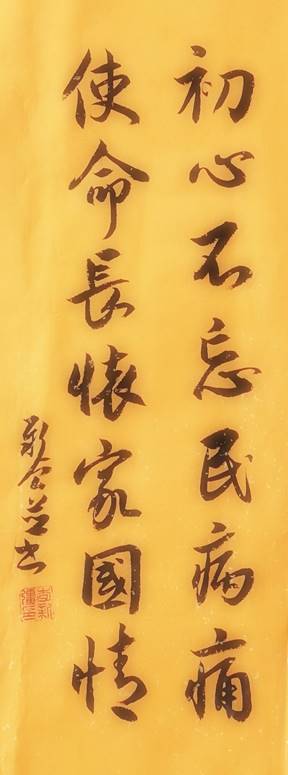 初心不忘民病痛
使命長懷家國情